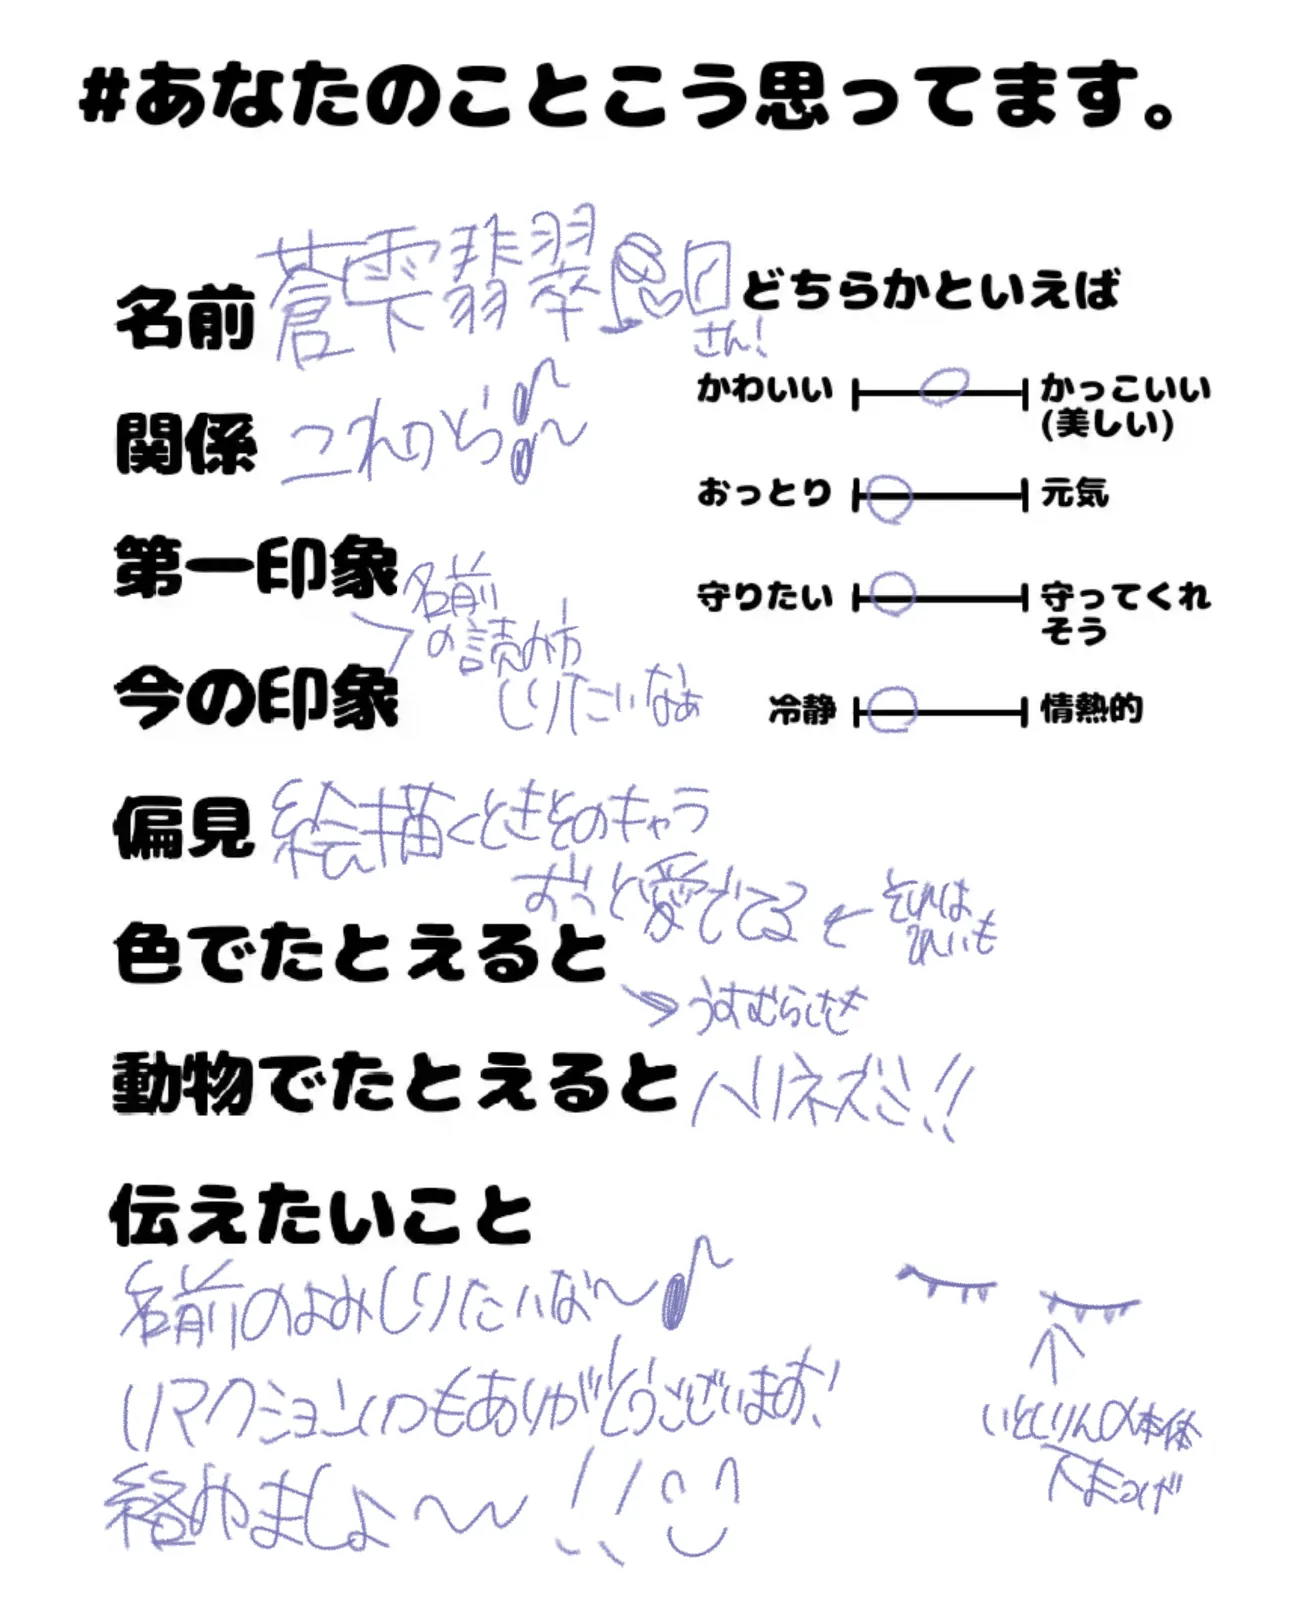 #あなたのことこう思ってます。
名前 蒼雫翡翠
さん!
関係 これから♪♪
第一印象
今の印象
名前
の読み方
しりたいなぁ
偏見 絵描くときそのキャラ
ずっと愛でてる ← それは
れいも
色でたとえると
→ うすむらさき
動物でたとえると ハリネズミ!!
伝えたいこと
名前のよみしりたいな〜♪
リアクションいつもありがとうございます!
絡みましょ〜〜!!
どちらかといえば
かわいい かっこいい
(美しい)
おっとり 元気
守りたい 守ってくれ
そう
冷静 情熱的
↑
本体
下まつげ